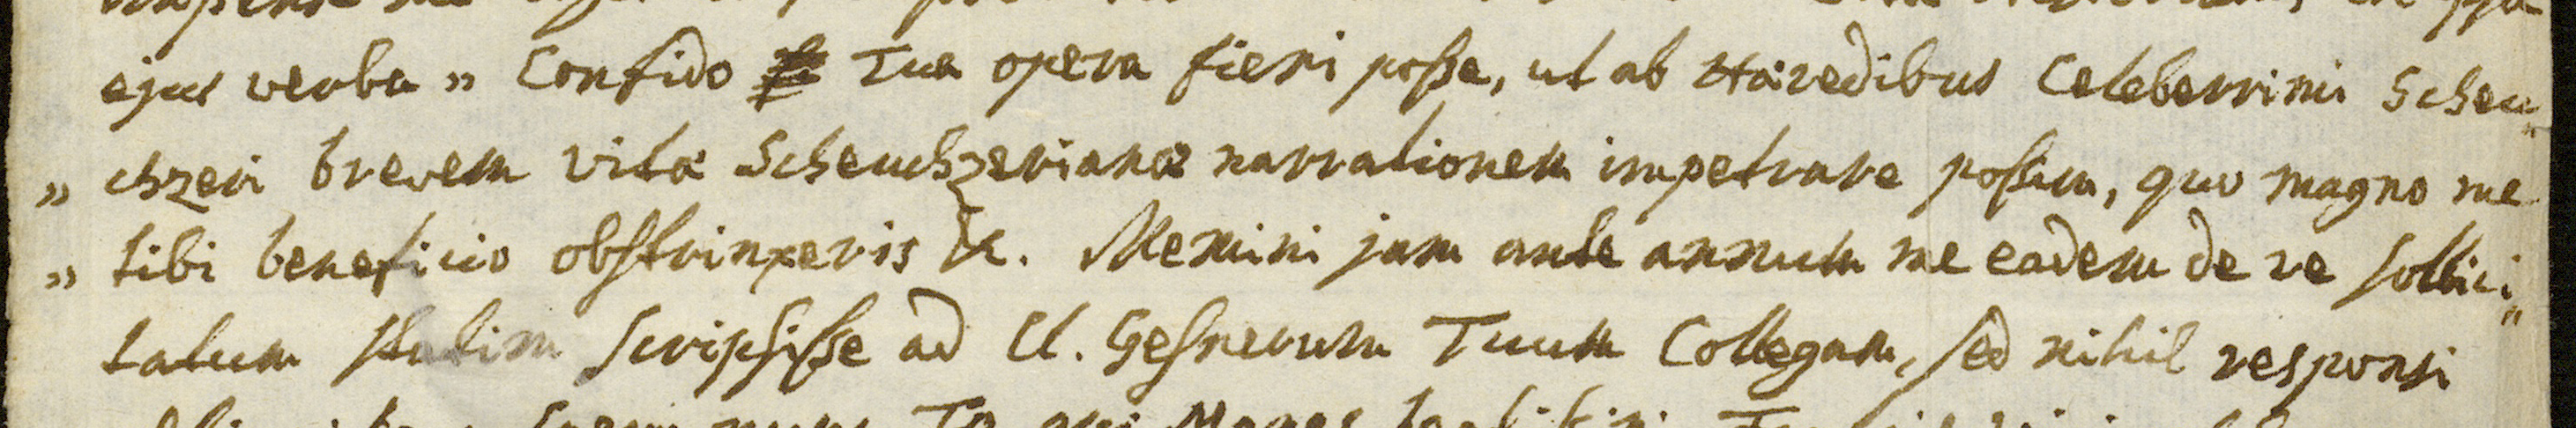 ejus verba „ Confido Tua opera fieri posse, ut ab Hæredibus Celeberrimi Scheu„
„ chzeri brevem vitæ Scheuchzerianæ narrationem impetrare possim, quo magno me
„ tibi beneficio obstrinxeris &c. Memini jam ante annum me eadem de re sollici„
tatum statim scripsisse ad Cl. Gesnerum Tuum Collegam, sed nihil responsi